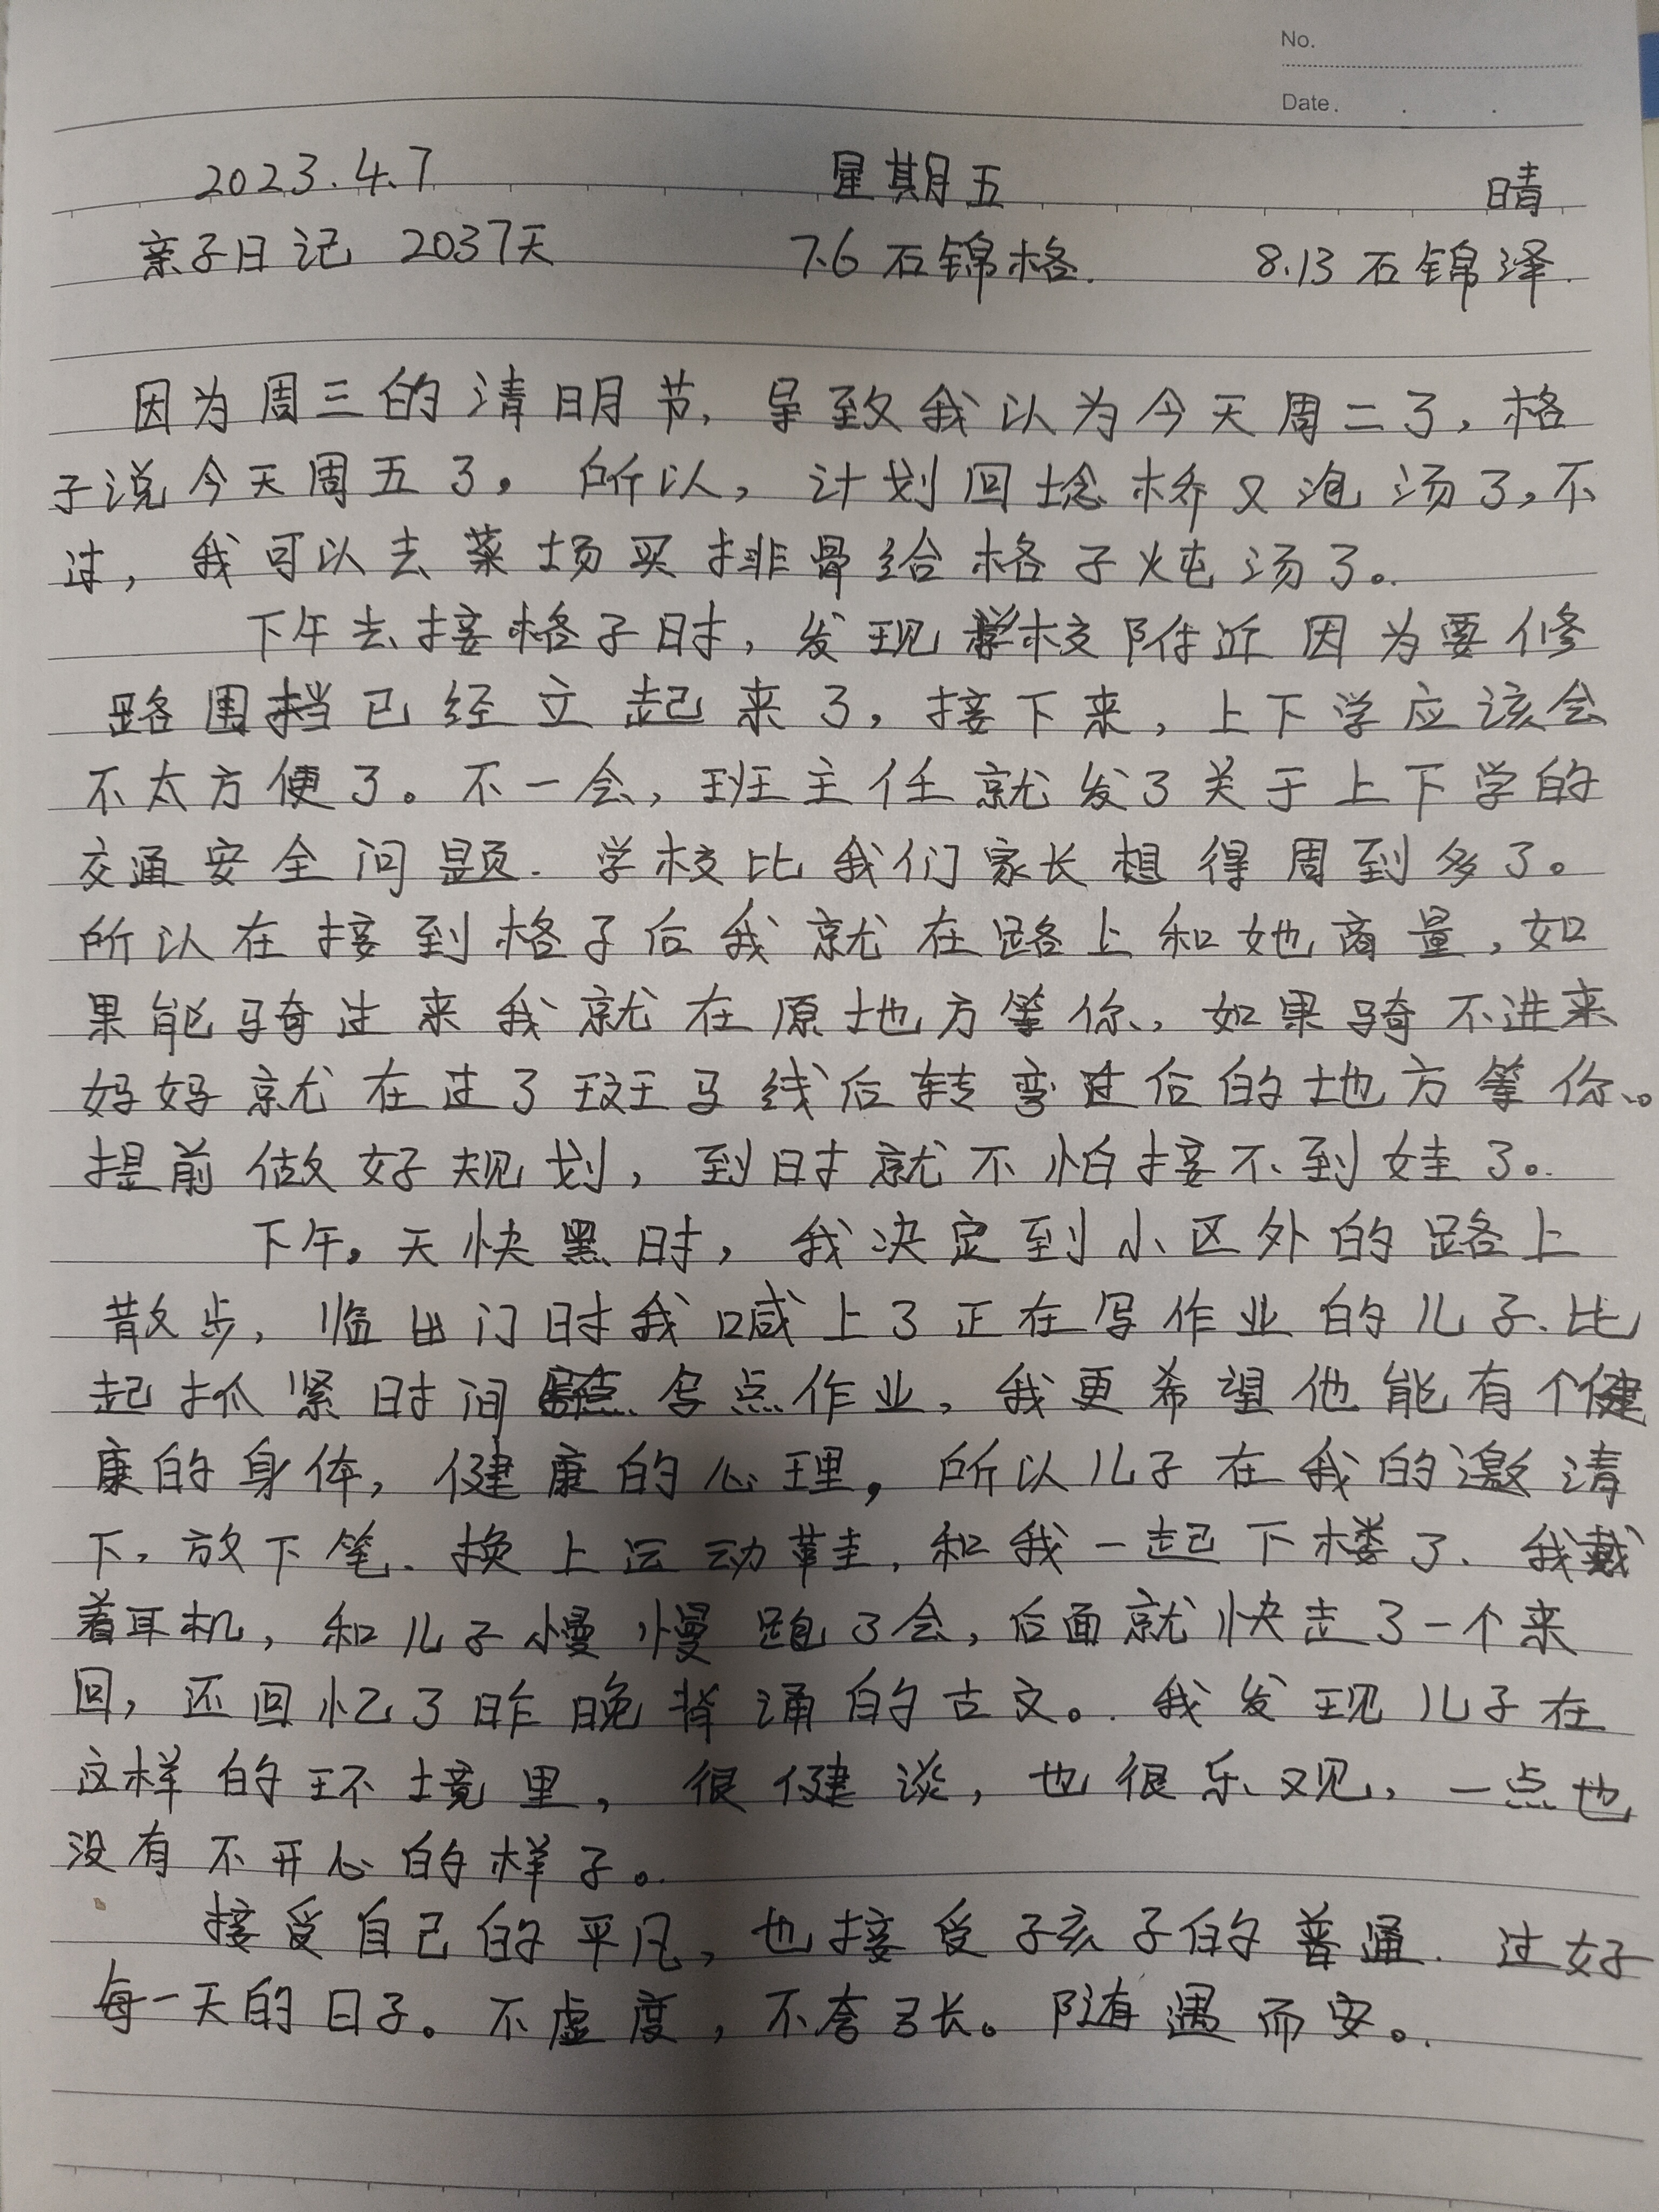 No.
Date.
2023.4.7 星期五 晴
亲子日记 2037天 7.6 石锦格. 8.13 石锦泽.
因为周三的清明节,导致我以为今天周二了,格
子说今天周五了。所以,计划回埝桥又泡汤了,不
过,我可以去菜场买排骨给格子炖汤了。
下午去接格子时,发现学校附近因为要修
路围挡已经立起来了,接下来,上下学应该会
不太方便了。不一会,班主任就发了关于上下学的
交通安全问题.学校比我们家长想得周到多了。
所以在接到格子后我就在路上和她商量,如
果能骑过来我就在原地方等你、如果骑不进来
妈妈就在过了斑马线后转弯过后的地方等你。
提前做好规划,到时就不怕接不到娃了。
下午。天快黑时,我决定到小区外的路上
散步,临出门时我喊上了正在写作业的儿子.比
起抓紧时间写点作业,我更希望他能有个健
康的身体,健康的心理,所以儿子在我的邀请
下,放下笔.换上运动鞋,和我一起下楼了.我戴
着耳机,和儿子慢慢跑了会,后面就快走了一个来
回,还回忆了昨晚背诵的古文。我发现儿子在
这样的环境里,很健谈,也很乐观,一点也
没有不开心的样子。
接受自己的平凡,也接受孩子的普通.过好
每一天的日子。不虚度,不夸张。随遇而安。